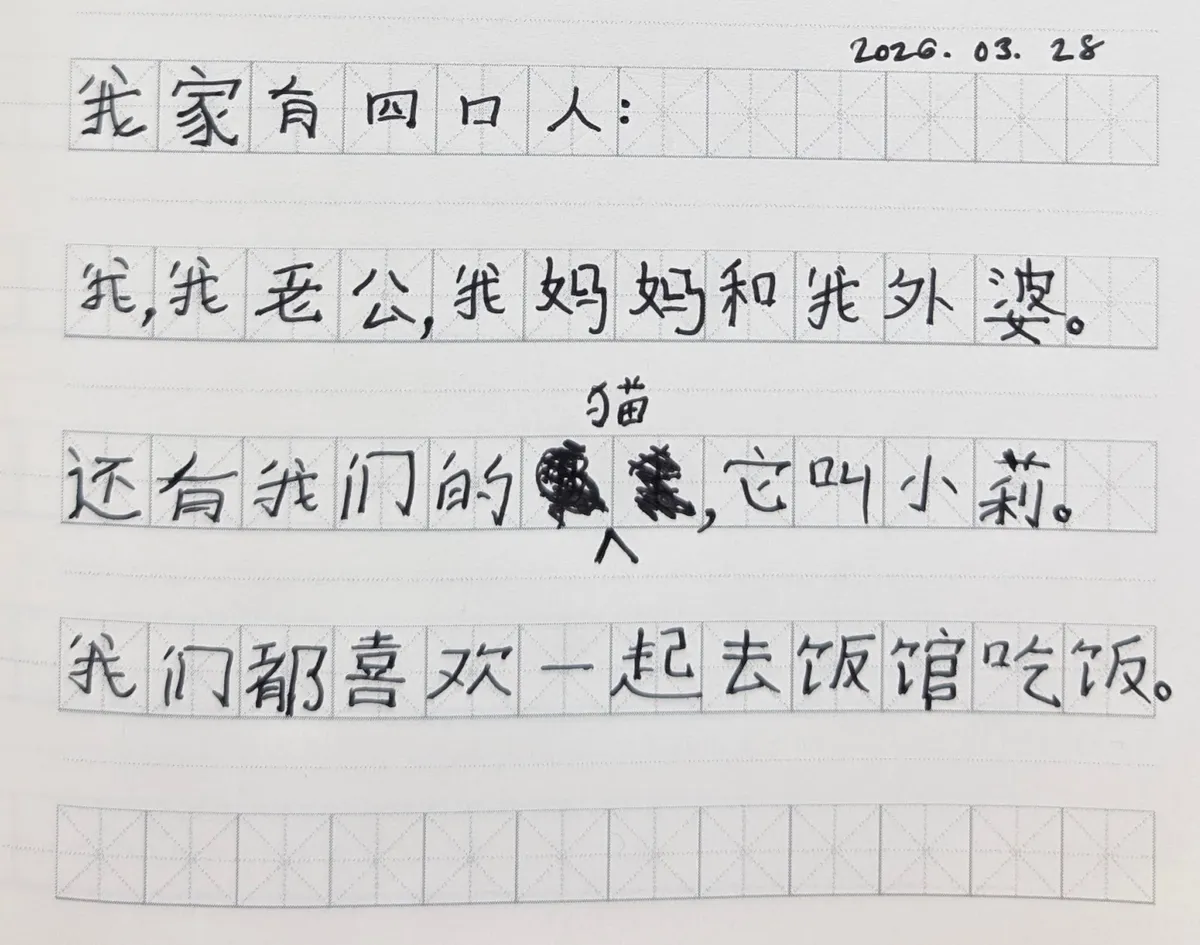 2026. 03. 28
我家有四口人:
我,我老公,我妈妈和我外婆。
还有我们的猫,它叫小莉。
我们都喜欢一起去饭馆吃饭。